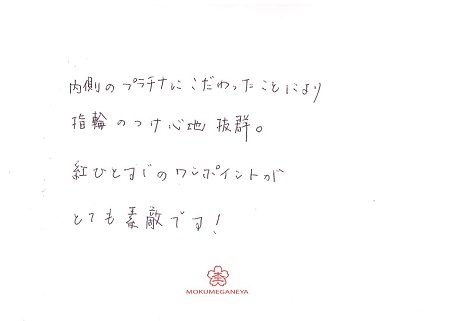 内側のプラチナにこだわったことにより
指輪のつけ心地 抜群。
紅ひとすじのワンポイントが
とても素敵です!
MOKUMEGANEYA